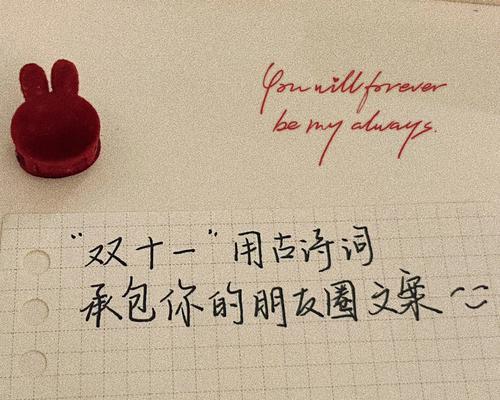 You will forever
be my always.
“双十一”用古诗词
承包你的朋友圈文案~